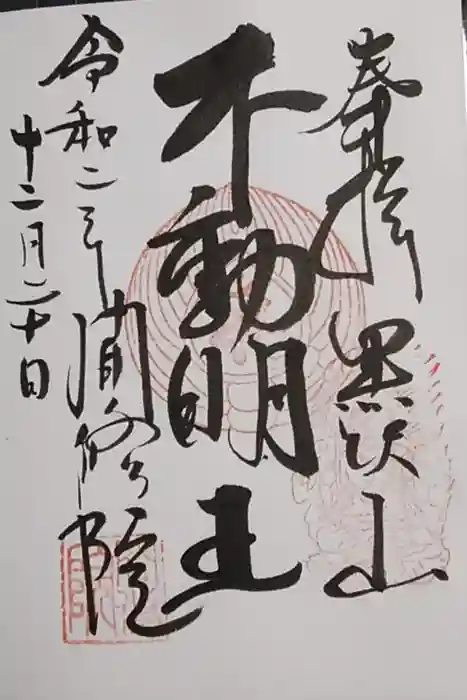 奉拝 黒沢山
不動明王
令和二年 修院
十二月二十日